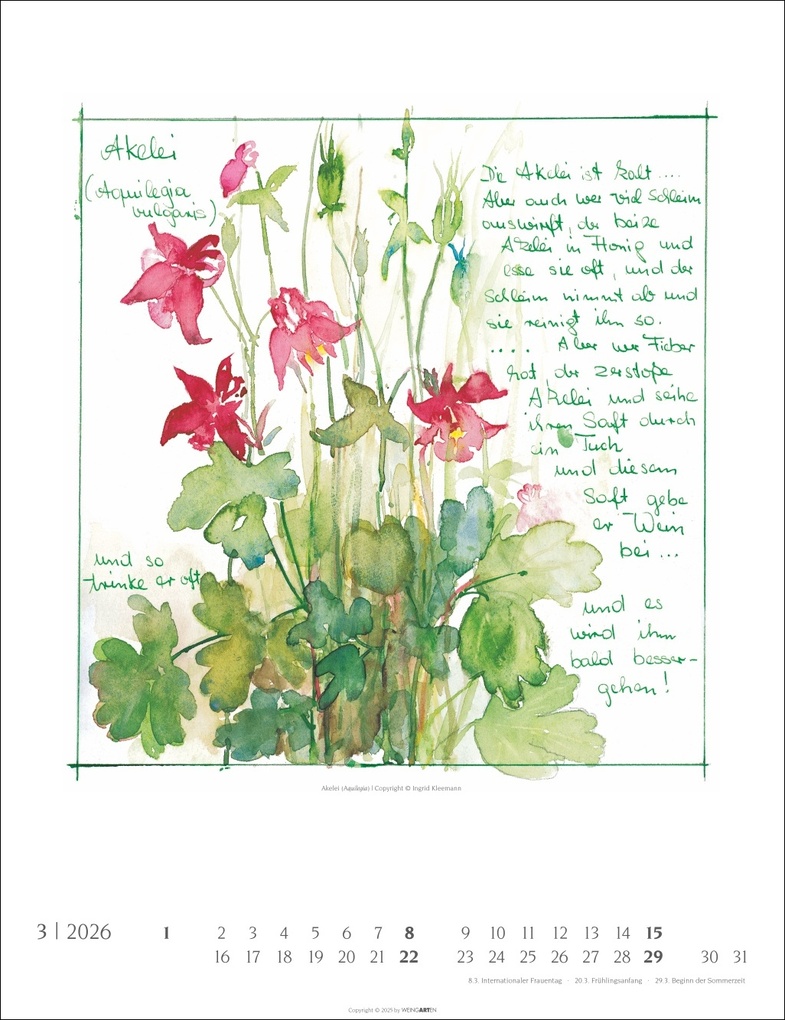 Akelei
(Aquilegia
vulgaris)
Die Akelei ist kalt ....
Aber auch wer viel Schleim
auswirft, der beize
Akelei in Honig und
esse sie oft, und der
Schleim nimmt ab und
sie reinigt ihn so.
.... Aber wer Fieber
hat der zerstoße
Akelei und seihe
ihren Saft durch
ein Tuch
und diesem
Saft gebe
er Wein
bei ...
und so
trinke er oft
und es
wird ihm
bald besser-
gehen!
Akelei (Aquilegia) | Copyright © Ingrid Kleemann
3 | 2026 1 2 3 4 5 6 7 8 9 10 11 12 13 14 15
16 17 18 19 20 21 22 23 24 25 26 27 28 29 30 31
8.3. Internationaler Frauentag · 20.3. Frühlingsanfang · 29.3. Beginn der Sommerzeit
Copyright © 2025 by WEINGARTEN